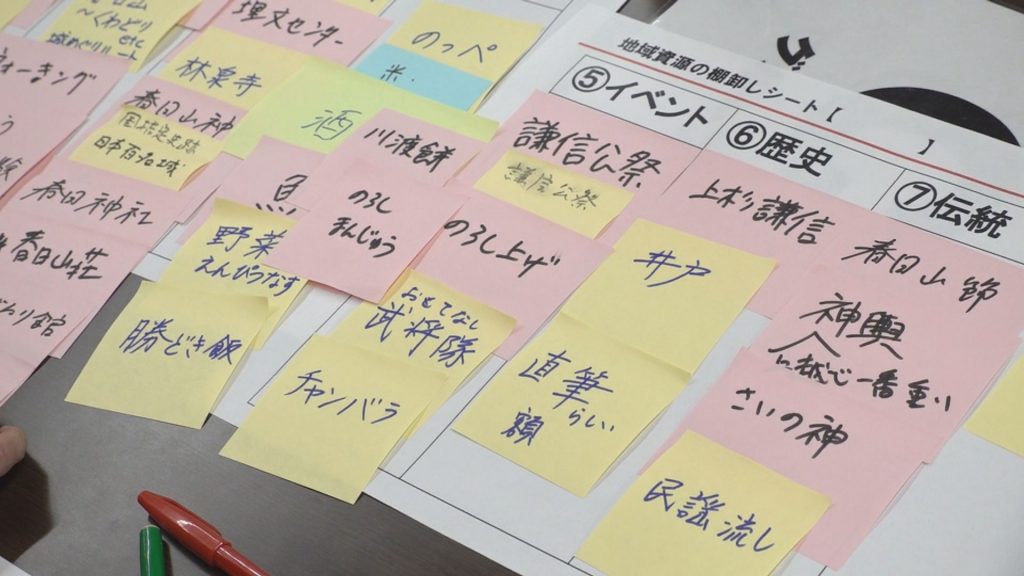 地域資源の棚卸しシート【 】
⑤イベント
⑥歴史
⑦伝統
埋文センター
のっぺ
米.
林泉寺
酒
春日山神
日本百名城
川渡餅
謙信公祭
謙信公祭
上杉謙信
春日山節
春日神社
春日山荘
のろし
まんじゅう
のろし上げ
井戸
野菜
えんぴつなす
おもてなし
武将隊
神輿
一番重い
さいの神
勝どき飯
チャンバラ
直筆
らしい
額
民謡流し